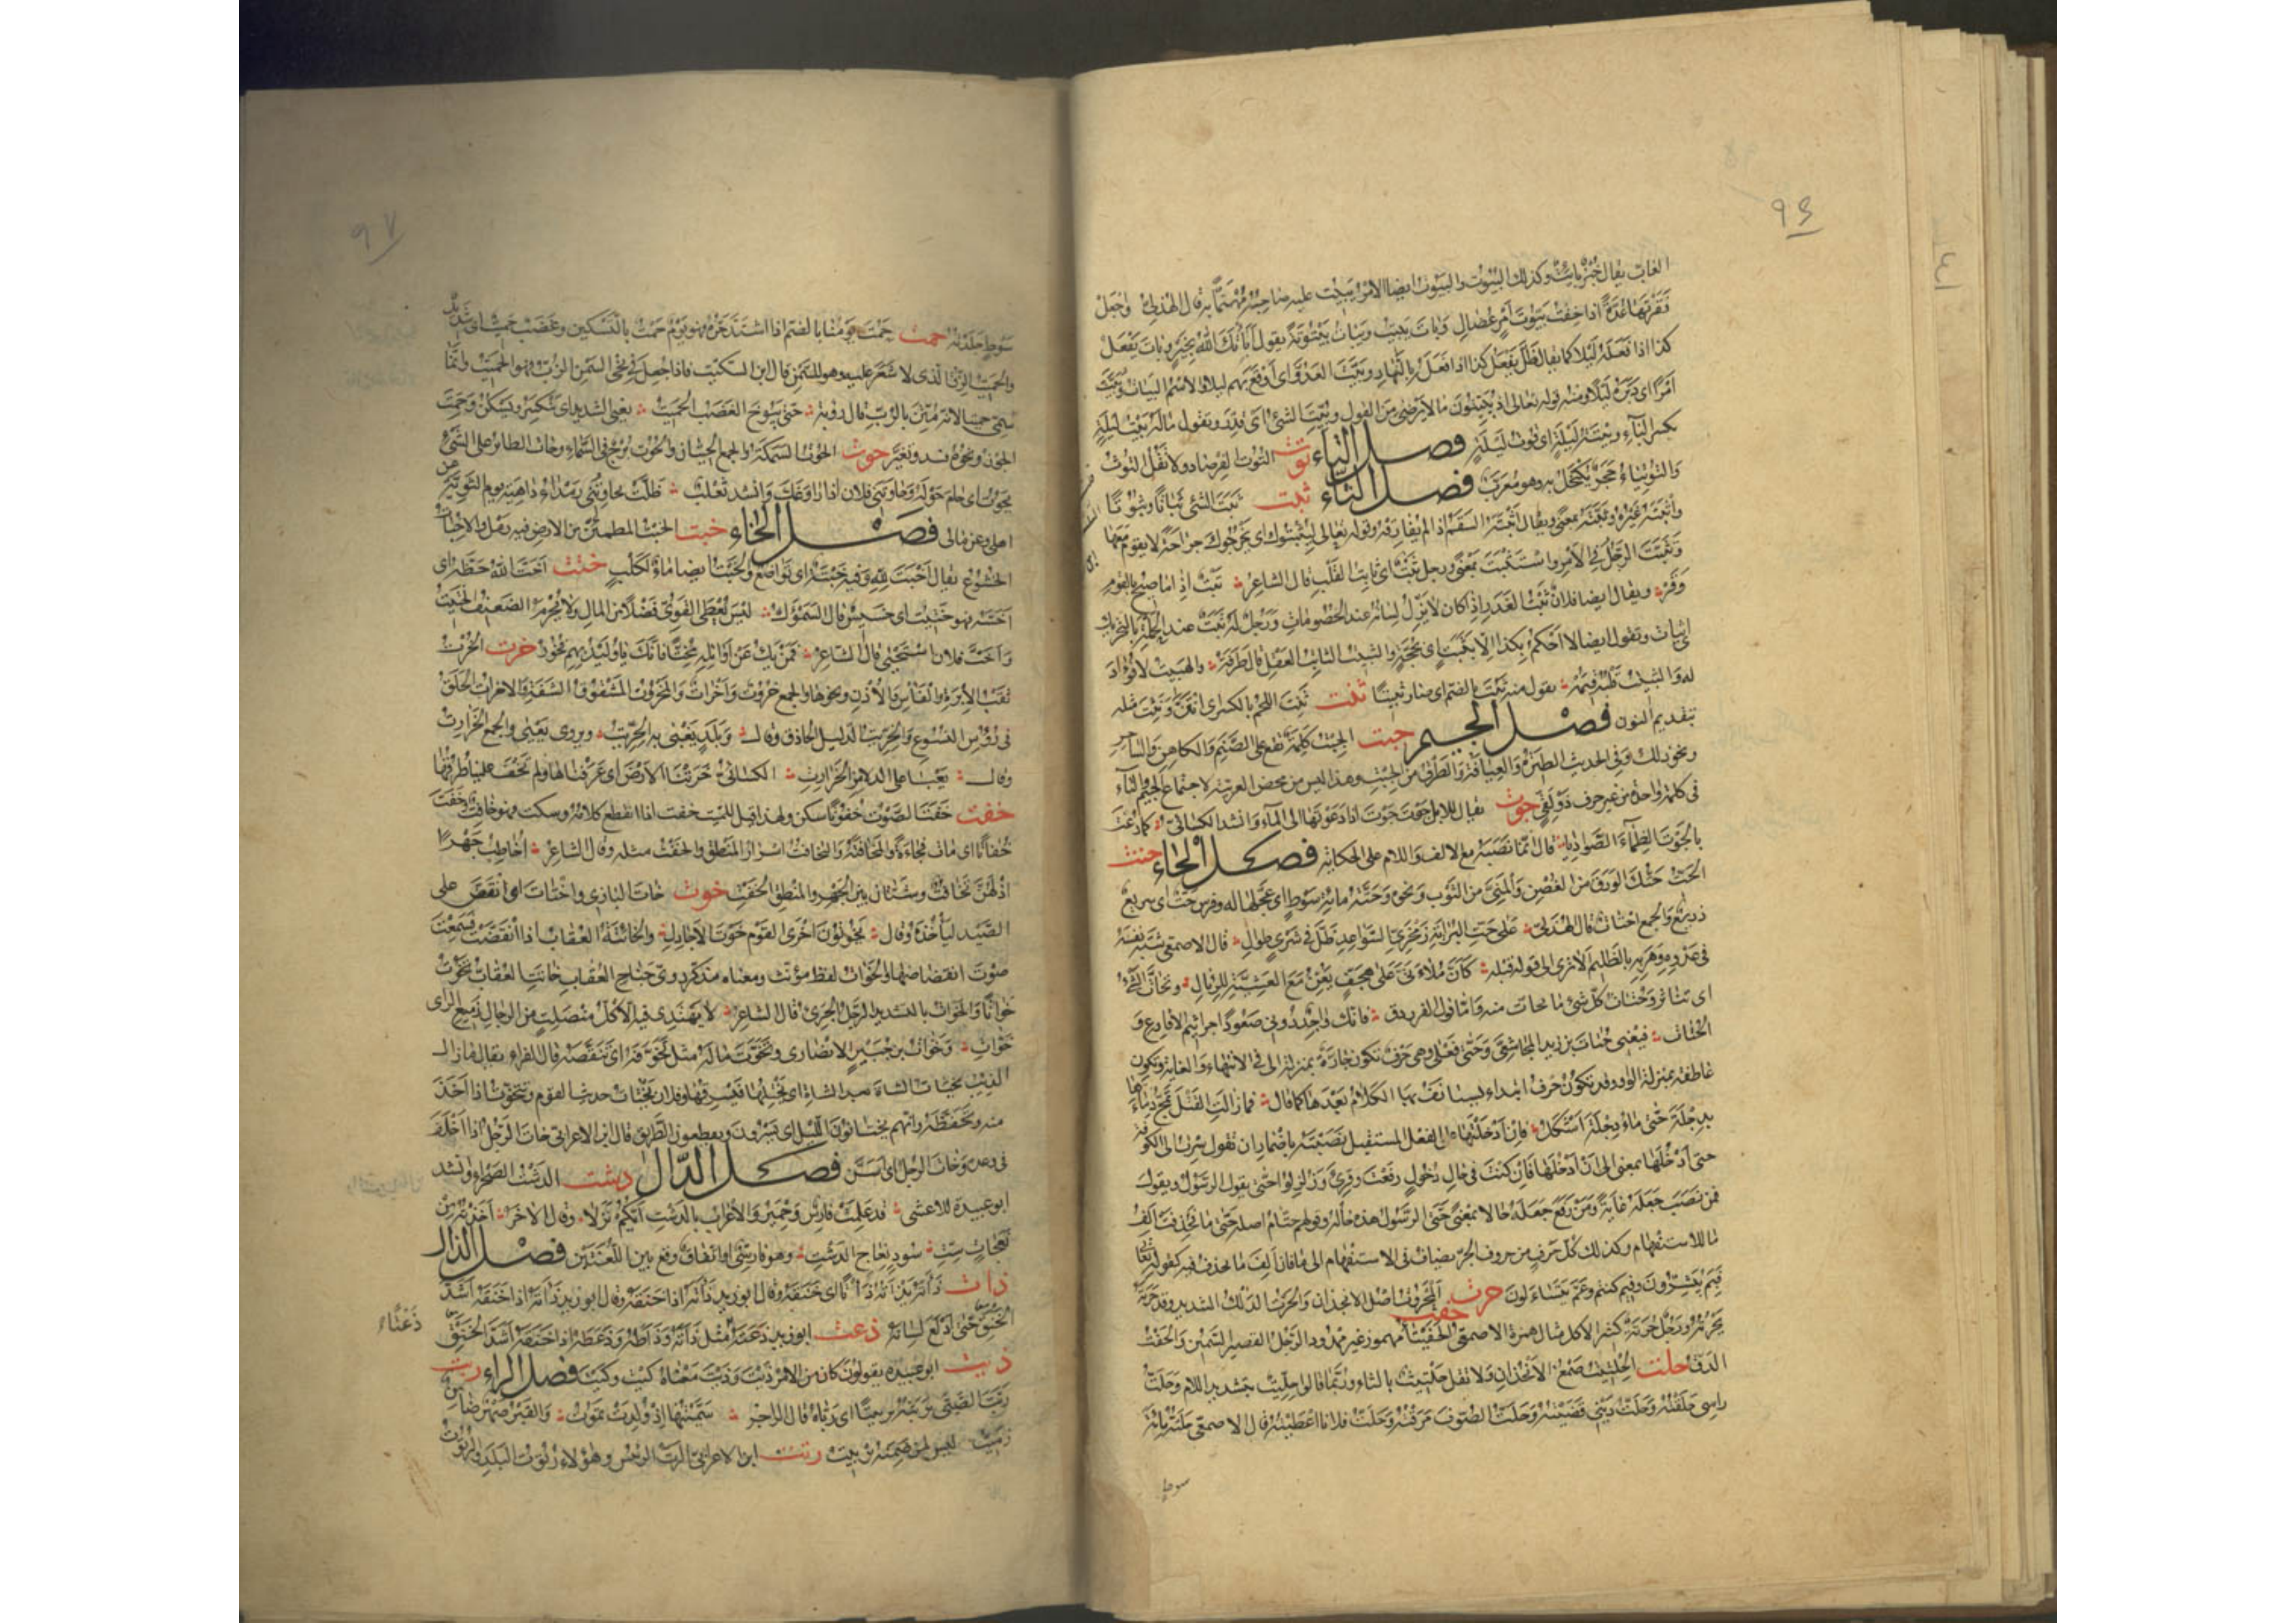 ٩٤
الغاب يقال خبز بائت وكذلك البيوت والبيوت ايضا الامر يبيت عليه صاحبه مهتما به قال الهذلى واجعل
فقرتها عدة اذا خفت بيوت امر عضال وبات يبيت ويبات بيتوتة يقول اباتك الله بخير وبات يفعل
كذا اذا فعله ليلا كما يقال ظل يفعل كذا اذا فعله بالنهار وبيت العدو اى اوقع بهم ليلا والاسم البيات وبيت
امرا اى دبره ليلا ومنه قوله تعالى اذ يبيتون ما لا يرضى من القول وبيت الشئ اى قدر ويقول ماله بيت ليلة
بكسر الباء وبيتة ليلة اى قوت ليلة فصل التاء توت التوت الفرصاد ولا تقل التوث
والتوتياء حجر يكتحل به وهو معرب فصل الثاء ثبت ثبت الشئ ثباتا وثبوتا
واثبته غيره وثبته بمعنى ويقال اثبته السقم اذا لم يفارقه وقوله تعالى ليثبتوك اى يجرحوك جراحة لا يقوم معها
وتثبت الرجل فى الامر واستثبت بمعنى ورجل ثبت اى ثابت القلب قال الشاعر ثبت اذا ما صيح بالقوم
وقر ويقال ايضا فلان ثبت الغدر اذا كان لا يزل لسانه عند الخصومات ورجل له ثبت عند الحملة بالتحريك
اى ثبات وتقول ايضا لا احكم بكذا الا بثبت اى بحجة والثبيت الثابت العقل قال طرفة والهبيت لا فؤاد
له والثبيت قلبه قيمه يقول منه ثبت بالضم اى صار ثبيتا ثنت ثنت اللحم بالكسر اى انتن ونثت مثله
بتقديم النون فصل الجيم جبت الجبت كلمة تقع على الصنم والكاهن والساحر
ونحو ذلك وفى الحديث الطيرة والعيافة والطرق من الجبت وهذا ليس من محض العربية لاجتماع الجيم والتاء
فى كلمة واحدة من غير حرف ذولقى جوت يقال للابل جوت جوت اذا دعوتها الى الماء وانشد الكسائى كما رعت
بالجوت الظماء الصواديا قال انما نصبه مع الالف واللام على الحكاية فصل الحاء حتت
الحت حتك الورق من الغصن والمنى من الثوب ونحوه وحته مائة سوط اى عجلها له وفرس حت اى سريع
ذريع والجمع احتات قال الهذلى على حت البراية زمخرى السواعد ظل فى شرى طوال قال الاصمعى شبه نفسه
فى عدوه وهربه بالظليم الا ترى الى قوله قبله كان ملاءتى على هجف يعن مع العشية للرئال وتحات الشئ
اى تناثر وحتات كل شئ ما تحات منه واما قول الفرزدق فانك واجد دونى صعودا جراثيم الاقارع و
الحتات فيعنى حتات بن زيد المجاشعى وحتى فعلى وهى حرف تكون جارة بمنزلة الى فى الانتهاء والغاية وتكون
عاطفة بمنزلة الواو وقد تكون حرف ابتداء يستانف بها الكلام بعدها كما قال فما زالت القتلى تمج دماءها
بدجلة حتى ماء دجلة اشكل فان ادخلتها على الفعل المستقبل نصبته باضمار ان تقول سرت الى الكوفة
حتى ادخلها بمعنى الى ان ادخلها فان كنت فى حال دخول رفعت وقرئ وزلزلوا حتى يقول الرسول ويقول
فمن نصب جعله غاية ومن رفع جعله حالا بمعنى حتى الرسول هذه حاله وقولهم حتام اصله حتى ما فحذفت الف
ما للاستفهام وكذلك كل حرف من حروف الجر يضاف فى الاستفهام الى ما فان الف ما يحذف فيه كقوله تعالى
فبم تبشرون وفيم كنتم وعم يتساءلون حرت المحروت اصل الانجذان والحرت الدلك الشديد وقد حرته
يحرته ورجل حرتة كثير الاكل مثال همزة حفت الاصمعى الحفيتأ مهموز غير ممدود الرجل القصير السمين والحفت
الدق حلت الحلتيت صمغ الانجذان ولا تقل حلتيث بالثاء وربما قالوا حليت بتشديد اللام وحلت
راسى حلقته وحلت دينى قضيته وحلت الصوف مرقته وحلت فلانا اعطيته قال الاصمعى حلته مائة
سوط
٩٧
سوط جلدته حمت حمت يومنا بالضم اذا اشتد حره فهو يوم حمت بالتسكين وغضب حميت اى شديد
والحميت الزق الذى لا شعر عليه وهو للسمن قال ابن السكيت فاذا جعل فى نحى السمن الرب فهو الحميت وانما
سمى حميتا لانه متن بالرب قال رؤبة حتى يبوخ الغضب الحميت يعنى الشديد اى ينكسر ويسكن وحمت
الجوز ونحوه فسد وتغير حوت الحوت السمكة والجمع الحيتان والحوت برج فى السماء وحات الطائر على الشئ
يحوت اى حام حوله وحاوتنى فلان اذا راوغك وانشد ثعلب ظلت تحاوتنى رمداء داهية يوم الثوية عن
اهلى وعن مالى فصل الخاء خبت الخبت المطمئن من الارض فيه رمل والاخبات
الخشوع يقال اخبت لله وفيه خبتة اى تواضع والخبت ايضا ماء لكلب ختت اخت الله حظه اى
اخسه فهو ختيت اى خسيس قال السموءل ليس يعطى القوى فضلا من المال ولا يحرم الضعيف الختيت
واخت فلان استحيى قال الشاعر فمن يك عن اوائله مختا فانك يا وليد بهم فخور خرت الخرت
ثقب الابرة والفاس والاذن ونحوها والجمع خروت واخرات والمخروت المشقوق الشفة والاخرات الحلق
فى رؤس النسوع والخريت الدليل الحاذق وقال وبلد يغبى به الخريت ويروى يعيى والجمع الخرارت
وقال يغبى على الدلامز الخرارت الكسائى خرتنا الارض اى عرفناها ولم تخف علينا طرقها
خفت خفت الصوت خفوتا سكن ولهذا قيل للميت خفت اذا انقطع كلامه وسكت فهو خافت وخفت
خفاتا اى مات فجاءة والمخافتة والتخافت اسرار المنطق والخفت مثله وقال الشاعر اخاطب جهرا
اذ لهن تخافت وشتان بين الجهر والمنطق الخفت خوت خات البازى واختات اى انقض على
الصيد ليأخذه وقال يخوتون اخرى القوم خوت الاجادل والخائتة العقاب اذا انقضت فسمعت
صوت انقضاضها والخوات لفظ مؤنث ومعناه مذكر دوى جناح العقاب خاتت العقاب تخوت
خواتا والخوات بالتشديد الرجل الجرى قال الشاعر لا يهتدى فيه الا كل منصلت من الرجال زميع الراى
خوات وخوات بن جبير الانصارى وتخوت ماله مثل تخوفه اى تنقصه قال الفراء يقال ما زال
الذئب يختات الشاة بعد الشاة اى يختلها فيسرقها وفلان يختات حديث القوم ويتخوت اذا اخذ
منه وتحفظه وانهم يختاتون الليل اى يسرون ويقطعون الطريق قال ابن الاعرابى خات الرجل اذا اخلف
فى وعده وخات الرجل اى اسن فصل الدال دشت الدشت الصحراء وانشد
ابو عبيدة للاعشى قد علمت فارس وحمير والاعراب بالدشت ايكم نزلا وقال الاخر اخذته من
نعجات ست سود نعاج الدشت وهو فارسى او اتفاق وقع بين اللغتين فصل الذال
ذات ذاته يذاته ذاتا اى خنقه وقال ابو زيد ذاته اذا خنقه وقال ابو زيد ذاته اذا خنقه اشد
الخنق حتى ادلع لسانه ذعت ابو زيد ذعته مثل ذاته وذاطه وذعطه اذا خنقه اشد الخنق
ذعتاء
ذيت ابو عبيدة يقولون كان من الامر ذيت وذيت معناه كيت وكيت فصل الراء ربت
ربت الصبى يربته تربيتا اى رباه قال الراجز سميتها اذ ولدت تموت والقبر صهر ضامن
زميت ليس لمن ضمنه تربيت رتت ابن الاعرابى الرت الرئيس وهؤلاء رتوت البلد والرتوت